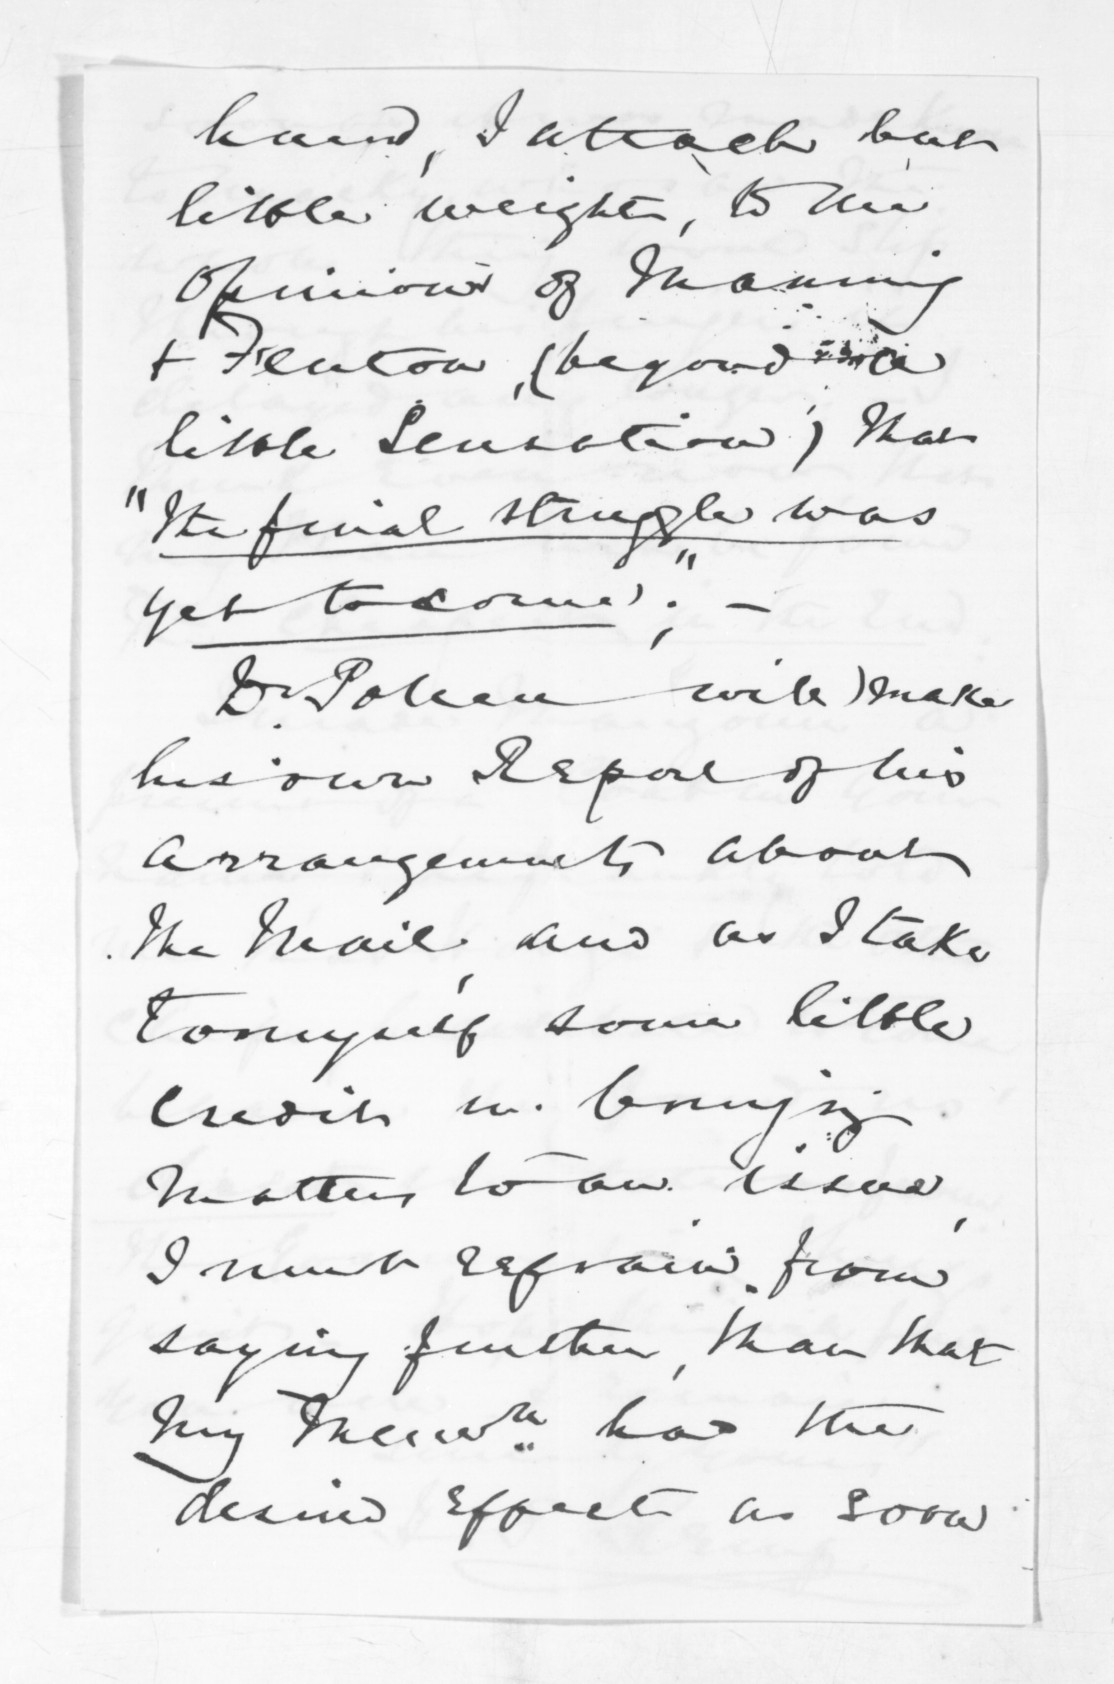 hand, I attach but
little weight, to the
opinions of Manning
& Fenton, (beyond a
little Sensation) that
"the final struggle was
yet to come"; —
Dr Pollen will make
his own Report of his
arrangements about
the Mail, and as I take
to myself some little
credit in bringing
matters to an issue,
I must refrain from
saying further, than that
my Memo. had the
desired effect as soon